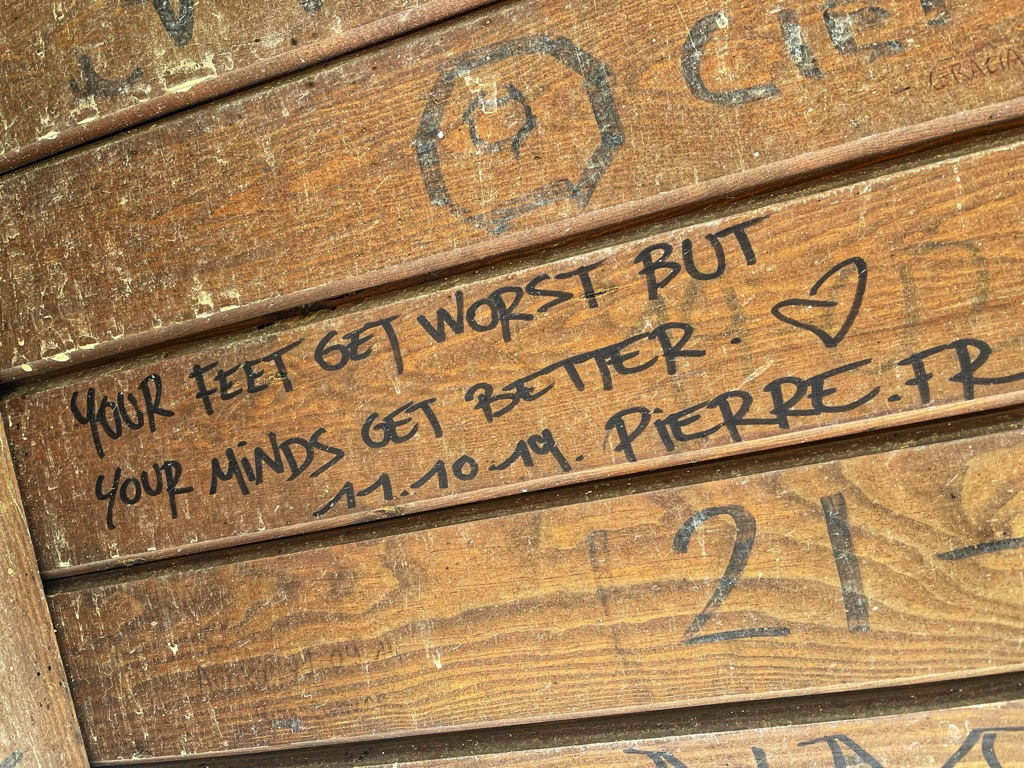 CIE
GRACIA
YOUR FEET GET WORST BUT
YOUR MINDS GET BETTER. ♡
11.10.19. PiERRE.FR
21